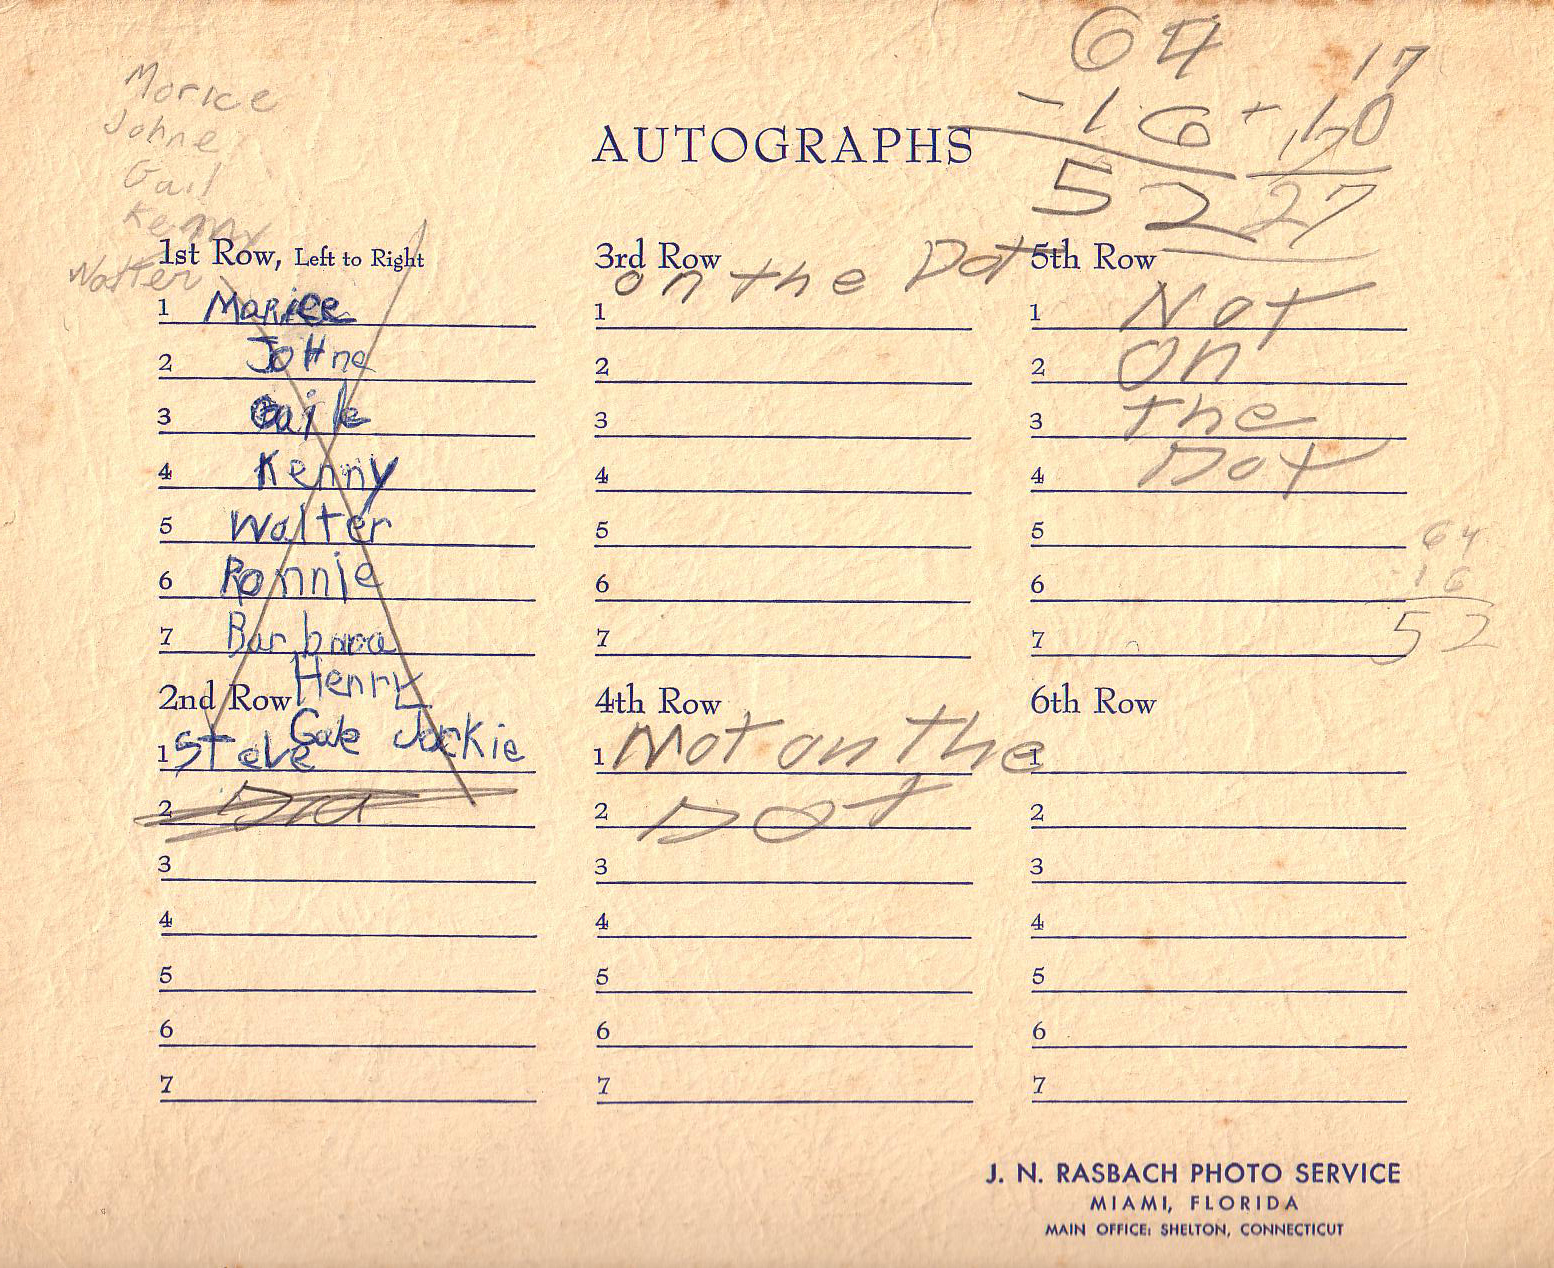 64
17
- 16
+ 10
52
27
Morice
Johne
Gail
Kenny
Walter
AUTOGRAPHS
1st Row, Left to Right
1 Moriee
2 JoHne
3 Gaile
4 Kenny
5 Walter
6 Ronnie
7 Barbara
Henry
2nd Row
Gale Jackie
1 Steve
2
3
4
5
6
7
3rd Row
on the Dot
1
2
3
4
5
6
7
4th Row
1 Not on the
2 Dot
3
4
5
6
7
5th Row
1 Not
2 on
3 the
4 Dot
5
6
7
64
-16
52
6th Row
1
2
3
4
5
6
7
J. N. RASBACH PHOTO SERVICE
MIAMI, FLORIDA
MAIN OFFICE: SHELTON, CONNECTICUT